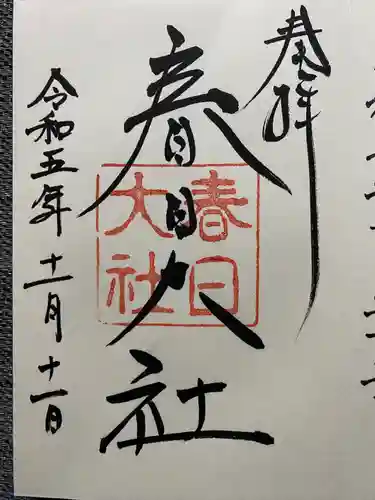 奉拝
春日大社
春日
大社
令和五年十一月十一日